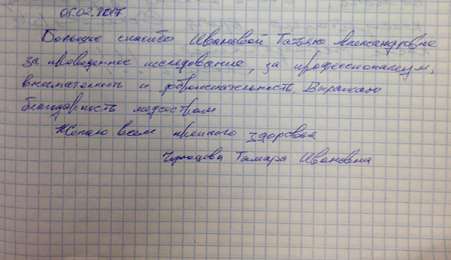 05.02.2017
Большое спасибо Ивановой Татьяне Александровне
за проведенное исследование, за профессионализм,
внимательность и доброжелательность. Выражаю
благодарность медсестрам
Желаю всем крепкого здоровья
Тамара Ивановна